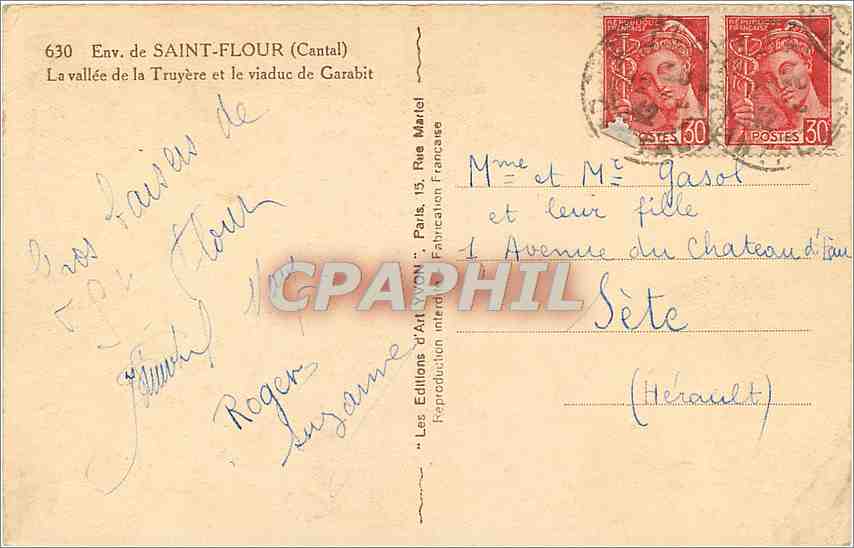 630 Env. de SAINT-FLOUR (Cantal)
La vallée de la Truyère et le viaduc de Garabit
Gros baisers de
St Flour
Roger
Suzanne
"Les Editions d'Art YVON", Paris, 15, Rue Martel
Reproduction interdite Fabrication Française
RÉPUBLIQUE FRANÇAISE
POSTES 30c
RÉPUBLIQUE FRANÇAISE
POSTES 30c
Mme et Mr Gasol
et leur fille
1 Avenue du Chateau d'Eau
Sète
(Hérault)
CPAPHIL